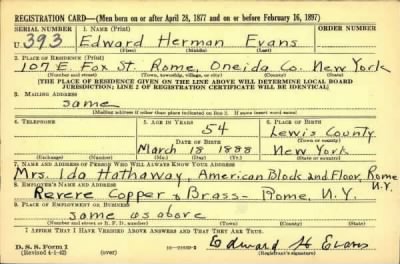 REGISTRATION CARD—(Men born on or after April 28, 1877 and on or before February 16, 1897)
SERIAL NUMBER 1. NAME (Print) ORDER NUMBER
U 393 Edward Herman Evans
(First) (Middle) (Last)
2. PLACE OF RESIDENCE (Print)
107 E. Fox St. Rome, Oneida Co. New York
(Number and street) (Town, township, village, or city) (County) (State)
[THE PLACE OF RESIDENCE GIVEN ON THE LINE ABOVE WILL DETERMINE LOCAL BOARD
JURISDICTION; LINE 2 OF REGISTRATION CERTIFICATE WILL BE IDENTICAL]
3. MAILING ADDRESS
same
(Mailing address if other than place indicated on line 2. If same insert word same)
4. TELEPHONE 5. AGE IN YEARS 6. PLACE OF BIRTH
54 Lewis County
DATE OF BIRTH (Town or county)
March 18 1888 New York
(Exchange) (Number) (Mo.) (Day) (Yr.) (State or country)
7. NAME AND ADDRESS OF PERSON WHO WILL ALWAYS KNOW YOUR ADDRESS
Mrs. Ida Hathaway, American Block and Floor, Rome
N.Y.
8. EMPLOYER'S NAME AND ADDRESS
Revere Copper & Brass - Rome, N.Y.
9. PLACE OF EMPLOYMENT OR BUSINESS
same as above
(Number and street or R. F. D. number) (Town) (County) (State)
I AFFIRM THAT I HAVE VERIFIED ABOVE ANSWERS AND THAT THEY ARE TRUE.
D. S. S. Form 1
(Revised 4-1-42) (over)
Edward H Evans
(Registrant's signature)